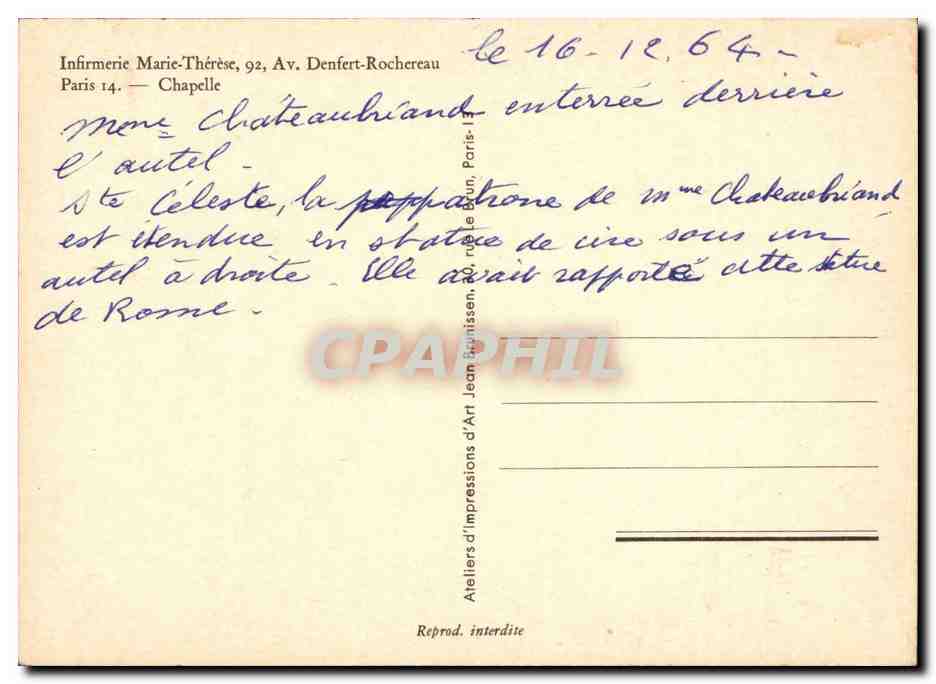 le 16-12.64-
Infirmerie Marie-Thérèse, 92, Av. Denfert-Rochereau
Paris 14. — Chapelle
Mme Châteaubriand enterrée derrière
l'autel -
Ste Céleste, la patrone de Mme Chateaubriand
est étendue en statue de cire sous un
autel à droite. Elle avait rapporté cette statue
de Rome.
CPAPHIL
Ateliers d'Impressions d'Art Jean Brunissen, 20, rue Le Brun, Paris-13
Reprod. interdite